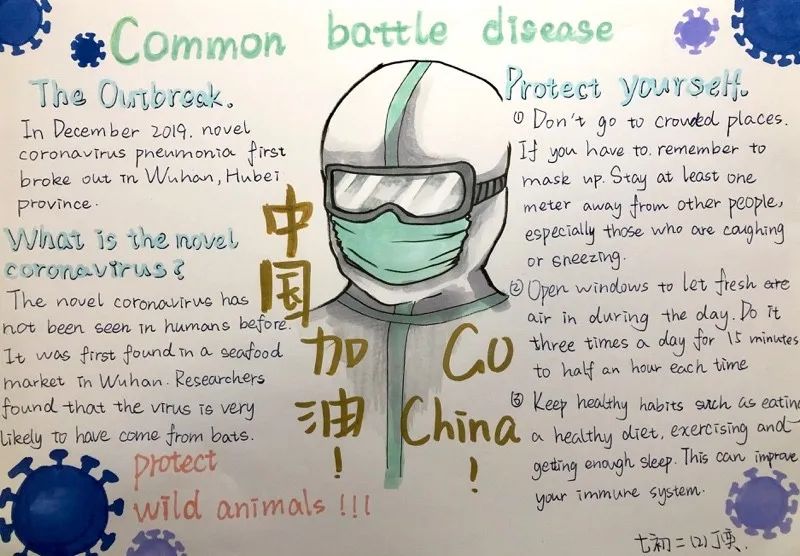 Common battle disease
The Outbreak.
In December 2019, novel
coronavirus pneumonia first
broke out in Wuhan, Hubei
province.
What is the novel
coronavirus?
The novel coronavirus has
not been seen in humans before.
It was first found in a seafood
market in Wuhan. Researchers
found that the virus is very
likely to have come from bats.
protect
wild animals !!!
中国
加油!
Go
China!
Protect yourself.
① Don't go to crowded places.
If you have to. remember to
mask up. Stay at least one
meter away from other people,
especially those who are coughing
or sneezing.
② Open windows to let fresh are
air in during the day. Do it
three times a day for 15 minutes
to half an hour each time
③ Keep healthy habits such as eating
a healthy diet, exercising and
getting enough sleep. This can improve
your immune system.
七初二(2)丁